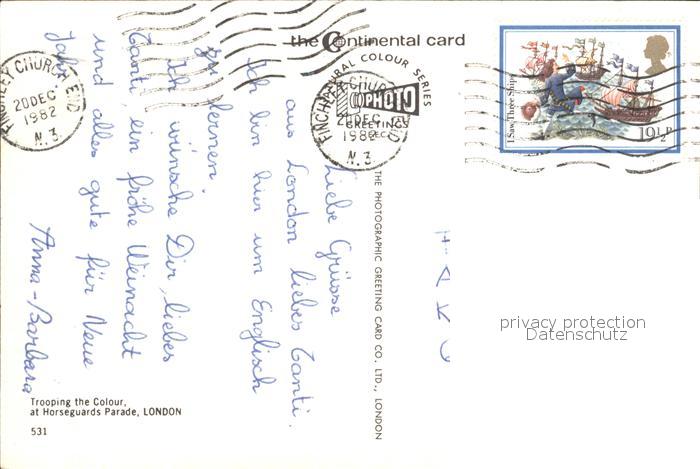 the Continental card
NATURAL COLOUR SERIES
PHOTO
GREETINGS
FINCHLEY CHURCH END
20 DEC
1982
N.3.
FINCHLEY CHURCH END
20 DEC
1982
N.3.
I Saw Three Ships
19½P
Liebe Grüsse
aus London liebes Tanti.
Ich bin hier um Englisch
zu lernen.
Ich wünsche Dir, liebes
Tanti, ein frohe Weinacht
und alles gute für Neue
Jahr.
Anna-Barbara
THE PHOTOGRAPHIC GREETING CARD CO., LTD., LONDON
privacy protection
Datenschutz
Trooping the Colour,
at Horseguards Parade, LONDON
531